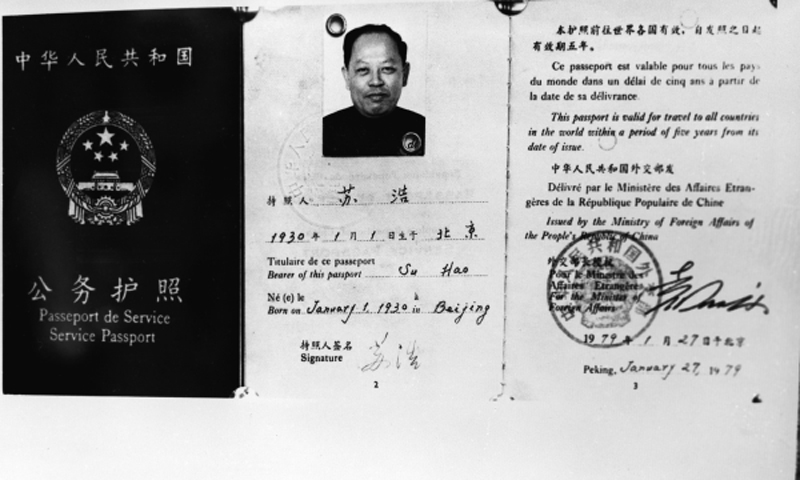 中华人民共和国
公务护照
Passeport de Service
Service Passport
持照人 苏浩
1930年1月1日生于北京
Titulaire de ce passeport
Bearer of this passport Su Hao
Né (e) le à
Born on January 1, 1930 in Beijing
持照人签名
Signature 苏浩
2
本护照前往世界各国有效，自发照之日起
有效期五年。
Ce passeport est valable pour tous les pays
du monde dans un délai de cinq ans à partir de
la date de sa délivrance.
This passport is valid for travel to all countries
in the world within a period of five years from its
date of issue.
中华人民共和国外交部发
Délivré par le Ministère des Affaires Etran-
gères de la République Populaire de Chine
Issued by the Ministry of Foreign Affairs of
the People's Republic of China
外交部长授权
Pour le Ministre des
Affaires Etrangères
For the Minister of
Foreign Affairs
1979年1月27日于北京
Peking, January 27, 1979
3